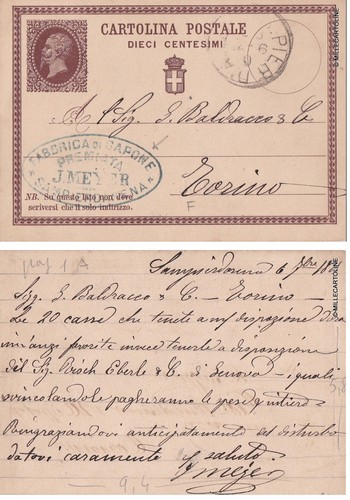 CARTOLINA POSTALE
DIECI CENTESIMI
PIER D'
All Sig. G. Baldracco & C.
FABBRICA DI SAPONE
PREMIATA
J. MEYER
Torino
NB. Su questo lato non deve
scriversi che il solo indirizzo.
F
© MILLECARTOLINE
pag 1 A
Sampierdarena 6
Sig. G. Baldracco & C. — Torino —
Le 20 casse che tenete a m/ disposizione
innanzi invece tenerle a disposizione
del Sig. Eberle & C. di Genova — i quali
svincolandole pagheranno le spese
Ringraziandovi anticipatamente del disturbo
caramente saluto
J Meyer
9,4
© MILLECARTOLINE